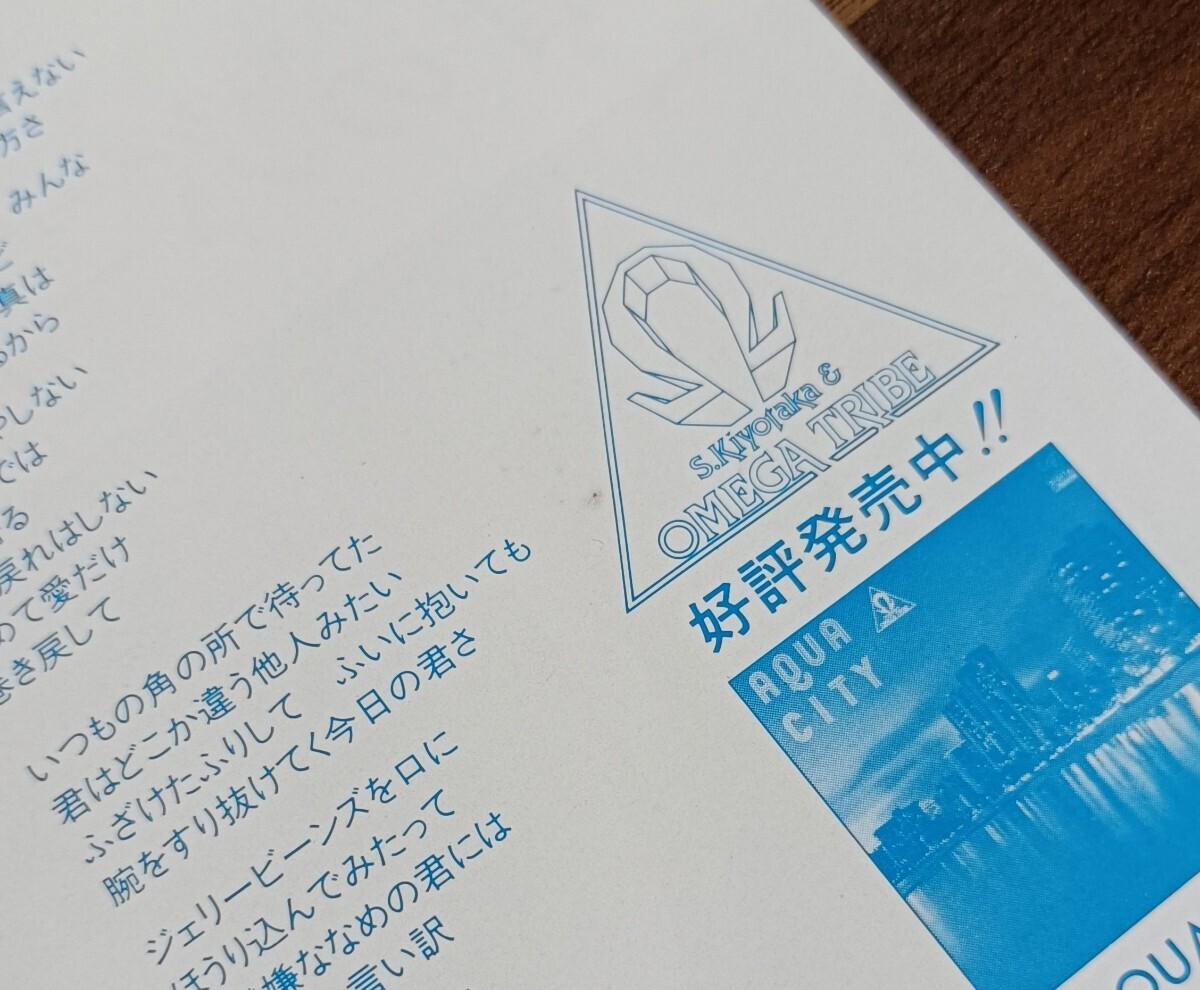 言えない
方さ
みんな
ど
真は
るから
やしない
では
る
戻れはしない
めて愛だけ
巻き戻して
いつもの角の所で待ってた
君はどこか違う他人みたい
ふざけたふりして　ふいに抱いても
腕をすり抜けてく今日の君さ
ジェリービーンズを口に
ほうり込んでみたって
嫌ななめの君には
言い訳
Ω
S.Kiyotaka &
OMEGA TRIBE
好評発売中!!
AQUA
CITY
Ω
QUA